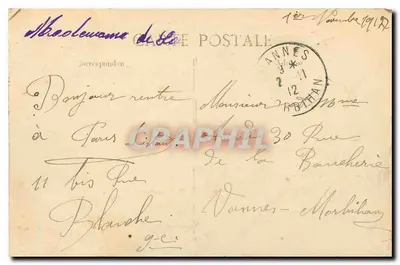 1er Novembre 1912
CARTE POSTALE
Correspondance
VANNES
2 11
12
MORBIHAN
Bonjour rentre
à Paris
11 bis Rue
Blanche
Monsieur Mme
30 Rue
de la Boucherie
Vannes - Morbihan
CPARAMA